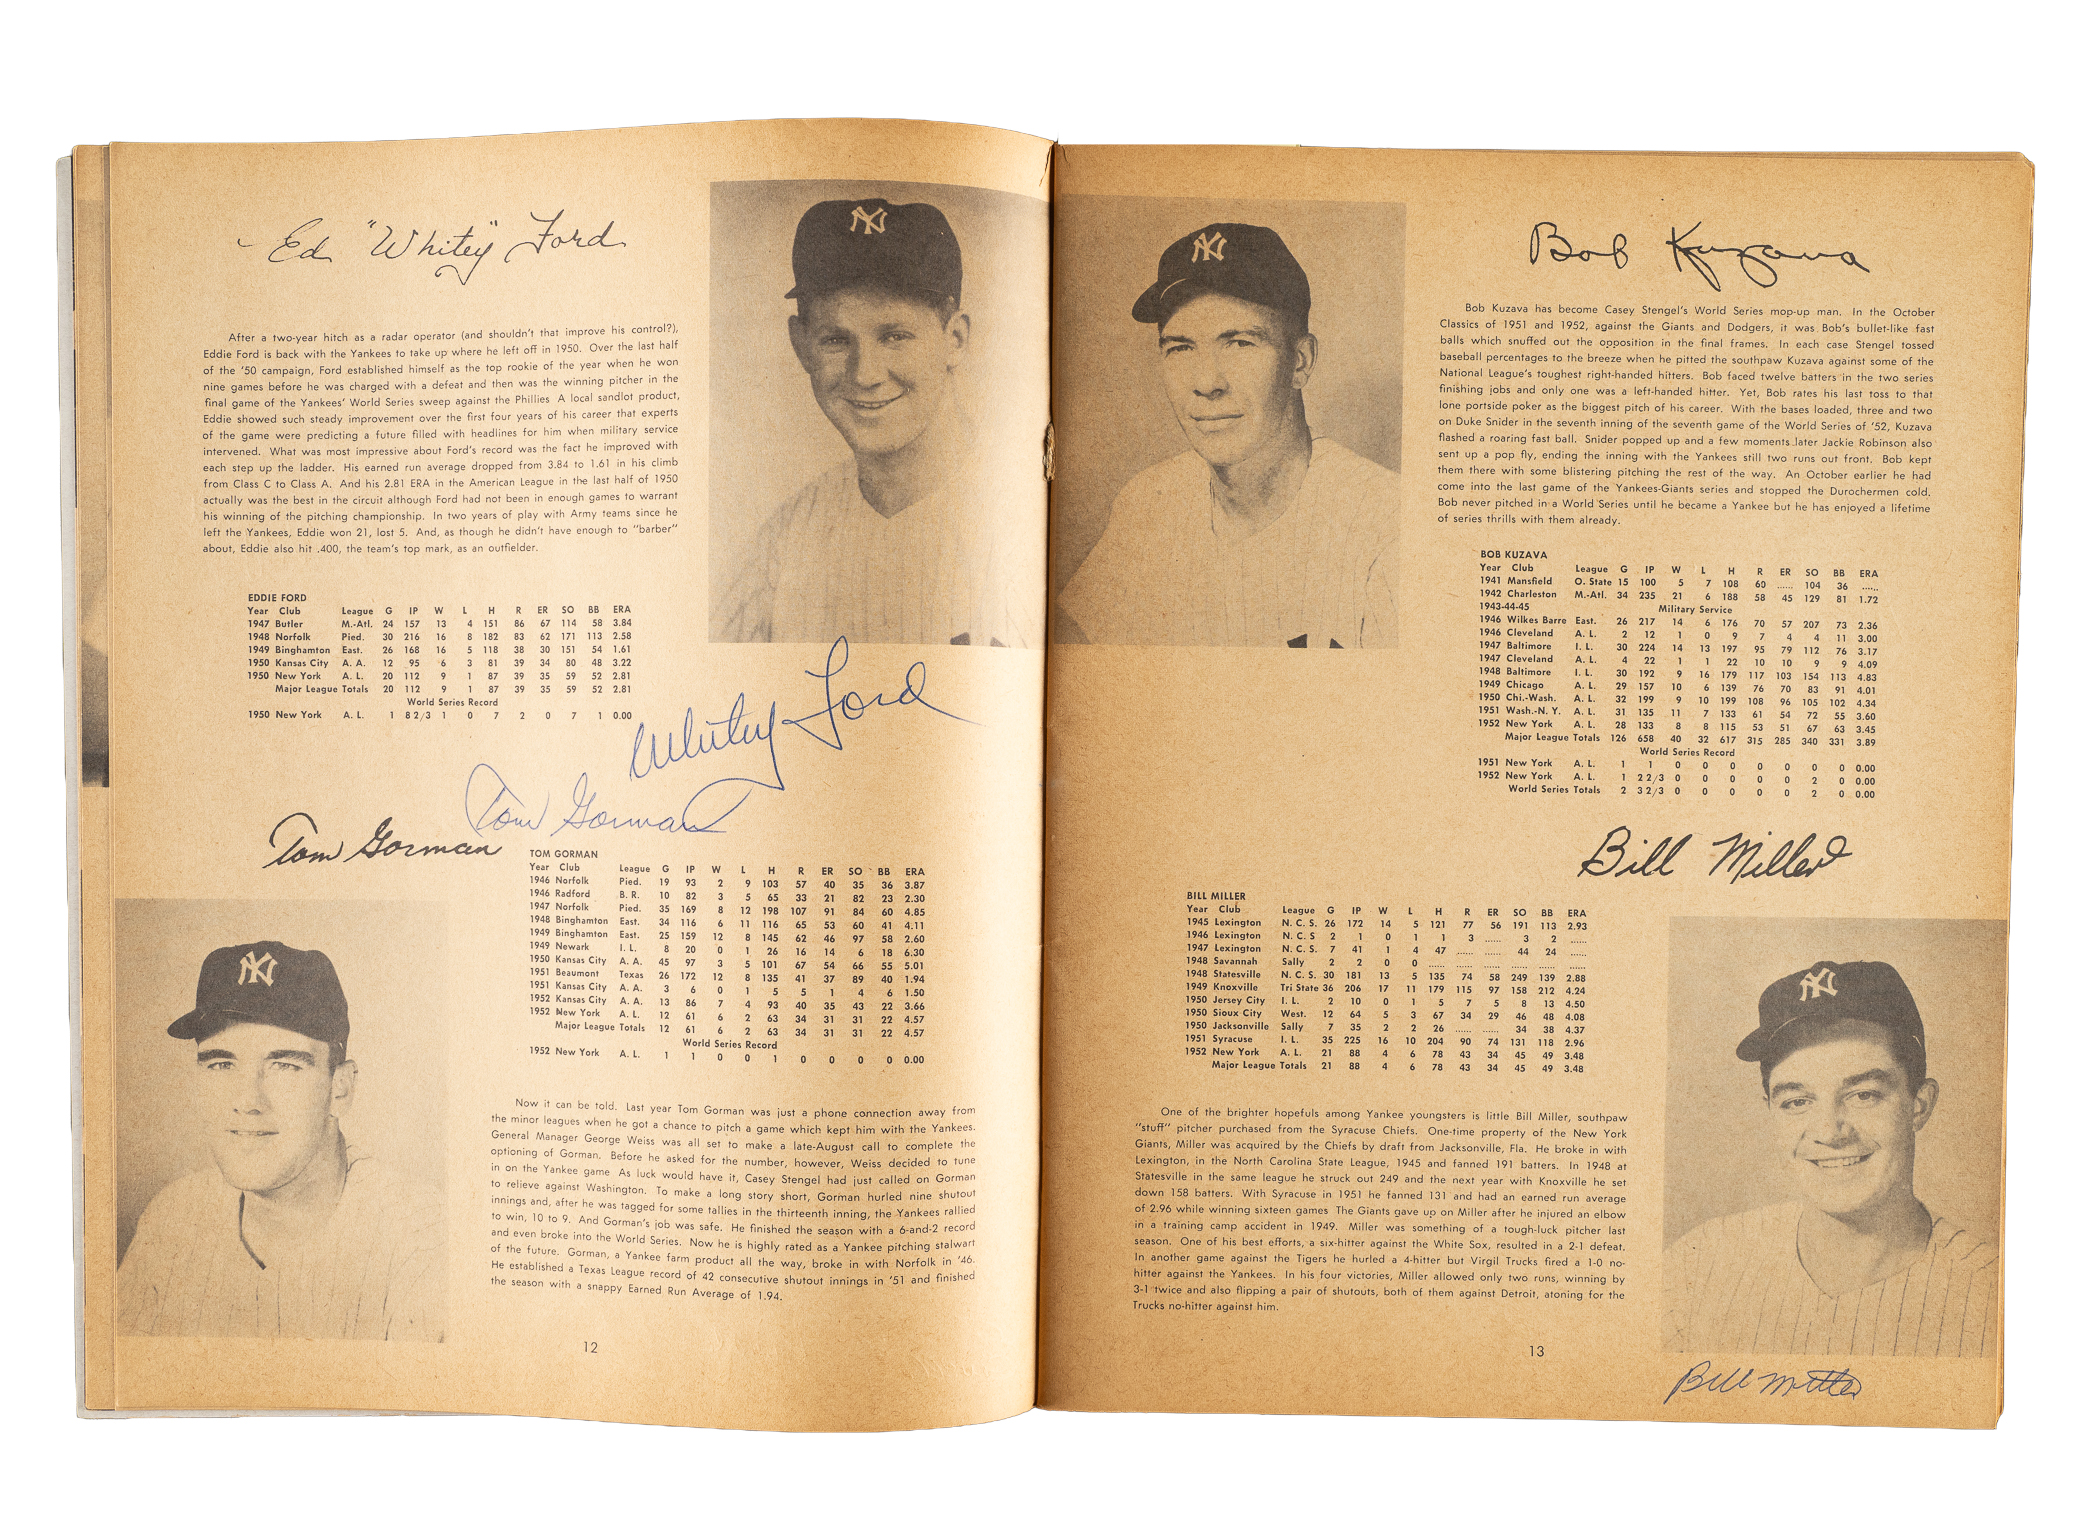 Ed "Whitey" Ford
After a two-year hitch as a radar operator (and shouldn't that improve his control?),
Eddie Ford is back with the Yankees to take up where he left off in 1950. Over the last half
of the '50 campaign, Ford established himself as the top rookie of the year when he won
nine games before he was charged with a defeat and then was the winning pitcher in the
final game of the Yankees' World Series sweep against the Phillies A local sandlot product,
Eddie showed such steady improvement over the first four years of his career that experts
of the game were predicting a future filled with headlines for him when military service
intervened. What was most impressive about Ford's record was the fact he improved with
each step up the ladder. His earned run average dropped from 3.84 to 1.61 in his climb
from Class C to Class A. And his 2.81 ERA in the American League in the last half of 1950
actually was the best in the circuit although Ford had not been in enough games to warrant
his winning of the pitching championship. In two years of play with Army teams since he
left the Yankees, Eddie won 21, lost 5. And, as though he didn't have enough to "barber"
about, Eddie also hit .400, the team's top mark, as an outfielder.
EDDIE FORD
Year Club League G IP W L H R ER SO BB ERA
1947 Butler M.-Atl. 24 157 13 4 151 86 67 114 58 3.84
1948 Norfolk Pied. 30 216 16 8 182 83 62 171 113 2.58
1949 Binghamton East. 26 168 16 5 118 38 30 151 54 1.61
1950 Kansas City A. A. 12 95 6 3 81 39 34 80 48 3.22
1950 New York A. L. 20 112 9 1 87 39 35 59 52 2.81
Major League Totals 20 112 9 1 87 39 35 59 52 2.81
World Series Record
1950 New York A. L. 1 8 2/3 1 0 7 2 0 7 1 0.00
Whitey Ford
Tom Gorman
Tom Gorman
TOM GORMAN
Year Club League G IP W L H R ER SO BB ERA
1946 Norfolk Pied. 19 93 2 9 103 57 40 35 36 3.87
1946 Radford B. R. 10 82 3 5 65 33 21 82 23 2.30
1947 Norfolk Pied. 35 169 8 12 198 107 91 84 60 4.85
1948 Binghamton East. 34 116 6 11 116 65 53 60 41 4.11
1949 Binghamton East. 25 159 12 8 145 62 46 97 58 2.60
1949 Newark I. L. 8 20 0 1 26 16 14 6 18 6.30
1950 Kansas City A. A. 45 97 3 5 101 67 54 66 55 5.01
1951 Beaumont Texas 26 172 12 8 135 41 37 89 40 1.94
1951 Kansas City A. A. 3 6 0 1 5 5 1 4 6 1.50
1952 Kansas City A. A. 13 86 7 4 93 40 35 43 22 3.66
1952 New York A. L. 12 61 6 2 63 34 31 31 22 4.57
Major League Totals 12 61 6 2 63 34 31 31 22 4.57
World Series Record
1952 New York A. L. 1 1 0 0 1 0 0 0 0 0.00
Now it can be told. Last year Tom Gorman was just a phone connection away from
the minor leagues when he got a chance to pitch a game which kept him with the Yankees.
General Manager George Weiss was all set to make a late-August call to complete the
optioning of Gorman. Before he asked for the number, however, Weiss decided to tune
in on the Yankee game As luck would have it, Casey Stengel had just called on Gorman
to relieve against Washington. To make a long story short, Gorman hurled nine shutout
innings and, after he was tagged for some tallies in the thirteenth inning, the Yankees rallied
to win, 10 to 9. And Gorman's job was safe. He finished the season with a 6-and-2 record
and even broke into the World Series. Now he is highly rated as a Yankee pitching stalwart
of the future. Gorman, a Yankee farm product all the way, broke in with Norfolk in '46.
He established a Texas League record of 42 consecutive shutout innings in '51 and finished
the season with a snappy Earned Run Average of 1.94.
12
Bob Kuzava
Bob Kuzava has become Casey Stengel's World Series mop-up man. In the October
Classics of 1951 and 1952, against the Giants and Dodgers, it was Bob's bullet-like fast
balls which snuffed out the opposition in the final frames. In each case Stengel tossed
baseball percentages to the breeze when he pitted the southpaw Kuzava against some of the
National League's toughest right-handed hitters. Bob faced twelve batters in the two series
finishing jobs and only one was a left-handed hitter. Yet, Bob rates his last toss to that
lone portside poker as the biggest pitch of his career. With the bases loaded, three and two
on Duke Snider in the seventh inning of the seventh game of the World Series of '52, Kuzava
flashed a roaring fast ball. Snider popped up and a few moments later Jackie Robinson also
sent up a pop fly, ending the inning with the Yankees still two runs out front. Bob kept
them there with some blistering pitching the rest of the way. An October earlier he had
come into the last game of the Yankees-Giants series and stopped the Durochermen cold.
Bob never pitched in a World Series until he became a Yankee but he has enjoyed a lifetime
of series thrills with them already.
BOB KUZAVA
Year Club League G IP W L H R ER SO BB ERA
1941 Mansfield O. State 15 100 5 7 108 60 ...... 104 36 ......
1942 Charleston M.-Atl. 34 235 21 6 188 58 45 129 81 1.72
1943-44-45 Military Service
1946 Wilkes Barre East. 26 217 14 6 176 70 57 207 73 2.36
1946 Cleveland A. L. 2 12 1 0 9 7 4 4 11 3.00
1947 Baltimore I. L. 30 224 14 13 197 95 79 112 76 3.17
1947 Cleveland A. L. 4 22 1 1 22 10 10 9 9 4.09
1948 Baltimore I. L. 30 192 9 16 179 117 103 154 113 4.83
1949 Chicago A. L. 29 157 10 6 139 76 70 83 91 4.01
1950 Chi.-Wash. A. L. 32 199 9 10 199 108 96 105 102 4.34
1951 Wash.-N. Y. A. L. 31 135 11 7 133 61 54 72 55 3.60
1952 New York A. L. 28 133 8 8 115 53 51 67 63 3.45
Major League Totals 126 658 40 32 617 315 285 340 331 3.89
World Series Record
1951 New York A. L. 1 1 0 0 0 0 0 0 0 0.00
1952 New York A. L. 1 2 2/3 0 0 0 0 0 2 0 0.00
World Series Totals 2 3 2/3 0 0 0 0 0 2 0 0.00
Bill Miller
BILL MILLER
Year Club League G IP W L H R ER SO BB ERA
1945 Lexington N. C. S. 26 172 14 5 121 77 56 191 113 2.93
1946 Lexington N. C. S 2 1 0 1 1 3 ...... 3 2 ......
1947 Lexington N. C. S. 7 41 1 4 47 ...... ...... 44 24 ......
1948 Savannah Sally 2 2 0 0 ...... ...... ...... ...... ...... ......
1948 Statesville N. C. S. 30 181 13 5 135 74 58 249 139 2.88
1949 Knoxville Tri State 36 206 17 11 179 115 97 158 212 4.24
1950 Jersey City I. L. 2 10 0 1 5 7 5 8 13 4.50
1950 Sioux City West. 12 64 5 3 67 34 29 46 48 4.08
1950 Jacksonville Sally 7 35 2 2 26 ...... ...... 34 38 4.37
1951 Syracuse I. L. 35 225 16 10 204 90 74 131 118 2.96
1952 New York A. L. 21 88 4 6 78 43 34 45 49 3.48
Major League Totals 21 88 4 6 78 43 34 45 49 3.48
One of the brighter hopefuls among Yankee youngsters is little Bill Miller, southpaw
"stuff" pitcher purchased from the Syracuse Chiefs. One-time property of the New York
Giants, Miller was acquired by the Chiefs by draft from Jacksonville, Fla. He broke in with
Lexington, in the North Carolina State League, 1945 and fanned 191 batters. In 1948 at
Statesville in the same league he struck out 249 and the next year with Knoxville he set
down 158 batters. With Syracuse in 1951 he fanned 131 and had an earned run average
of 2.96 while winning sixteen games The Giants gave up on Miller after he injured an elbow
in a training camp accident in 1949. Miller was something of a tough-luck pitcher last
season. One of his best efforts, a six-hitter against the White Sox, resulted in a 2-1 defeat.
In another game against the Tigers he hurled a 4-hitter but Virgil Trucks fired a 1-0 no-
hitter against the Yankees. In his four victories, Miller allowed only two runs, winning by
3-1 twice and also flipping a pair of shutouts, both of them against Detroit, atoning for the
Trucks no-hitter against him.
13
Bill Miller
NY
NY
NY
NY